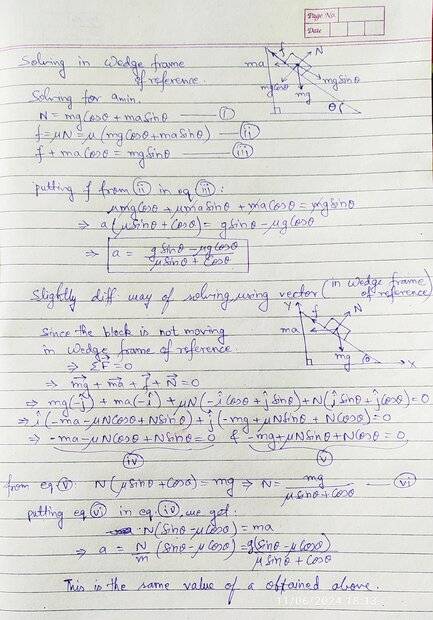 Page No.
Date
Solving in Wedge frame
of reference.
f N
ma
mgcosθ mgsinθ
mg
θ
Solving for amin.
N = mgCosθ + masinθ —— (i)
f = μN = μ(mgCosθ + masinθ) —— (ii)
f + maCosθ = mgsinθ —— (iii)
putting f from (ii) in eq (iii):
μmgCosθ + μmasinθ + maCosθ = mgsinθ
⇒ a(μsinθ + Cosθ) = gsinθ - μgCosθ
⇒ a = (gsinθ - μgCosθ)/(μsinθ + Cosθ)
Slightly diff way of solving using vector (in Wedge frame
of reference)
Y f N
ma
mg
θ X
Since the block is not moving
in Wedge frame of reference
⇒ ΣF⃗ = 0
⇒ mg⃗ + ma⃗ + f⃗ + N⃗ = 0
⇒ mg(-ĵ) + ma(-î) + μN(-îCosθ + ĵsinθ) + N(îsinθ + ĵcosθ) = 0
⇒ î(-ma - μNCosθ + Nsinθ) + ĵ(-mg + μNsinθ + NCosθ) = 0
⇒ -ma - μNCosθ + Nsinθ = 0 & -mg + μNsinθ + NCosθ = 0
(iv) (v)
from eq (v): N(μsinθ + Cosθ) = mg ⇒ N = mg/(μsinθ + Cosθ) —— (vi)
putting eq (vi) in eq. (iv), we get:
N(sinθ - μCosθ) = ma
⇒ a = N/m (sinθ - μCosθ) = g(sinθ - μCosθ)/(μsinθ + Cosθ)
This is the same value of a obtained above.
11/06/2024 18:13